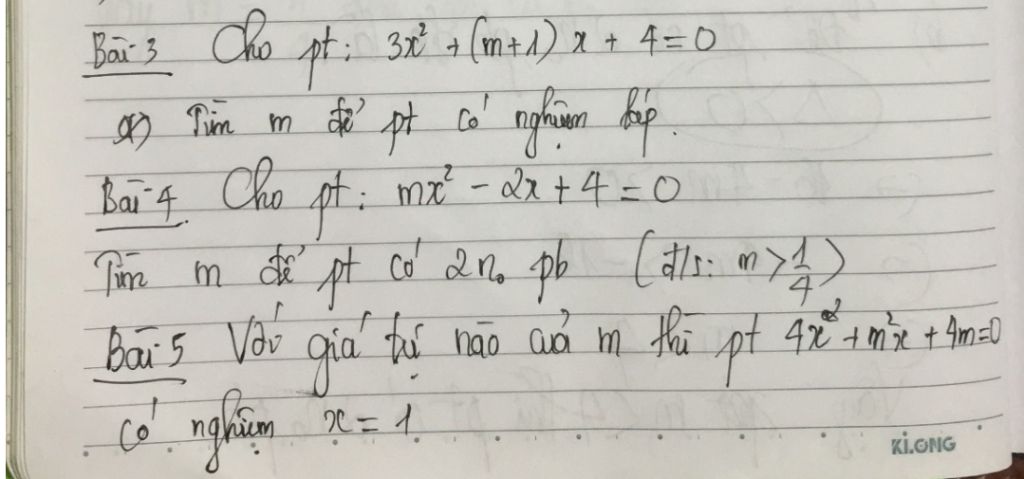 Bài 3 Cho pt: 3x² + (m+1) x + 4 = 0
a) Tìm m để pt có nghiệm kép.
Bài 4 Cho pt: mx² - 2x + 4 = 0
Tìm m để pt có 2 n₀ pb (đ/s: m > 1/4)
Bài 5 Với giá trị nào của m thì pt 4x² + m²x + 4m = 0
có nghiệm x = 1
KiLONG